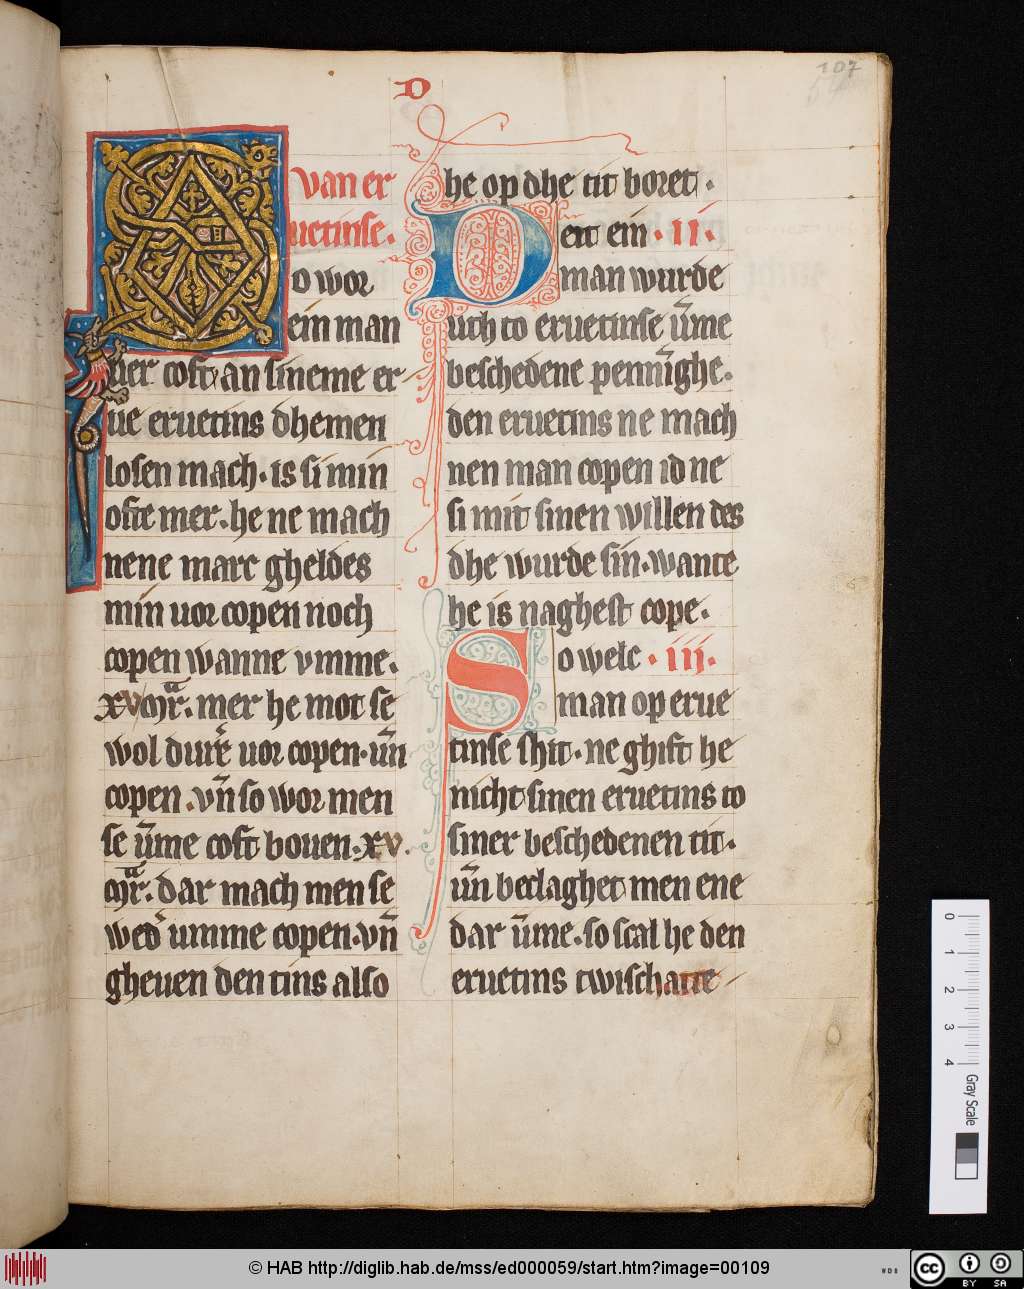 107
D
van er
uetinse.
A o wor
ein man
uer coft an sineme er
ue eruetins dhemen
losen mach. is si min
ofte mer. he ne mach
nene marc gheldes
min uor copen noch
copen wanne vmme.
xv mr̃. mer he mot se
wol dure uor copen. un̄
copen. vn̄ so wor men
se ūme coft bouen. xv.
mr̃. dar mach men se
wed' umme copen. vn̄
gheuen den tins also
he op dhe tit boret.
Deit ein. II.
man wurde
uch to eruetinse ūme
beschedene pennīghe.
den eruetins ne mach
nen man copen id ne
si mit sinen willen des
dhe wurde sin. wante
he is naghest cope.
So welc. III.
man op erue
tinse shit. ne ghift he
nicht sinen eruetins to
siner beschedenen tit.
un̄ beclaghet men ene
dar ūme. so scal he den
eruetins twischatte
0 1 2 3 4 Gray Scale
© HAB http://diglib.hab.de/mss/ed000059/start.htm?image=00109
WDB
cc BY SA